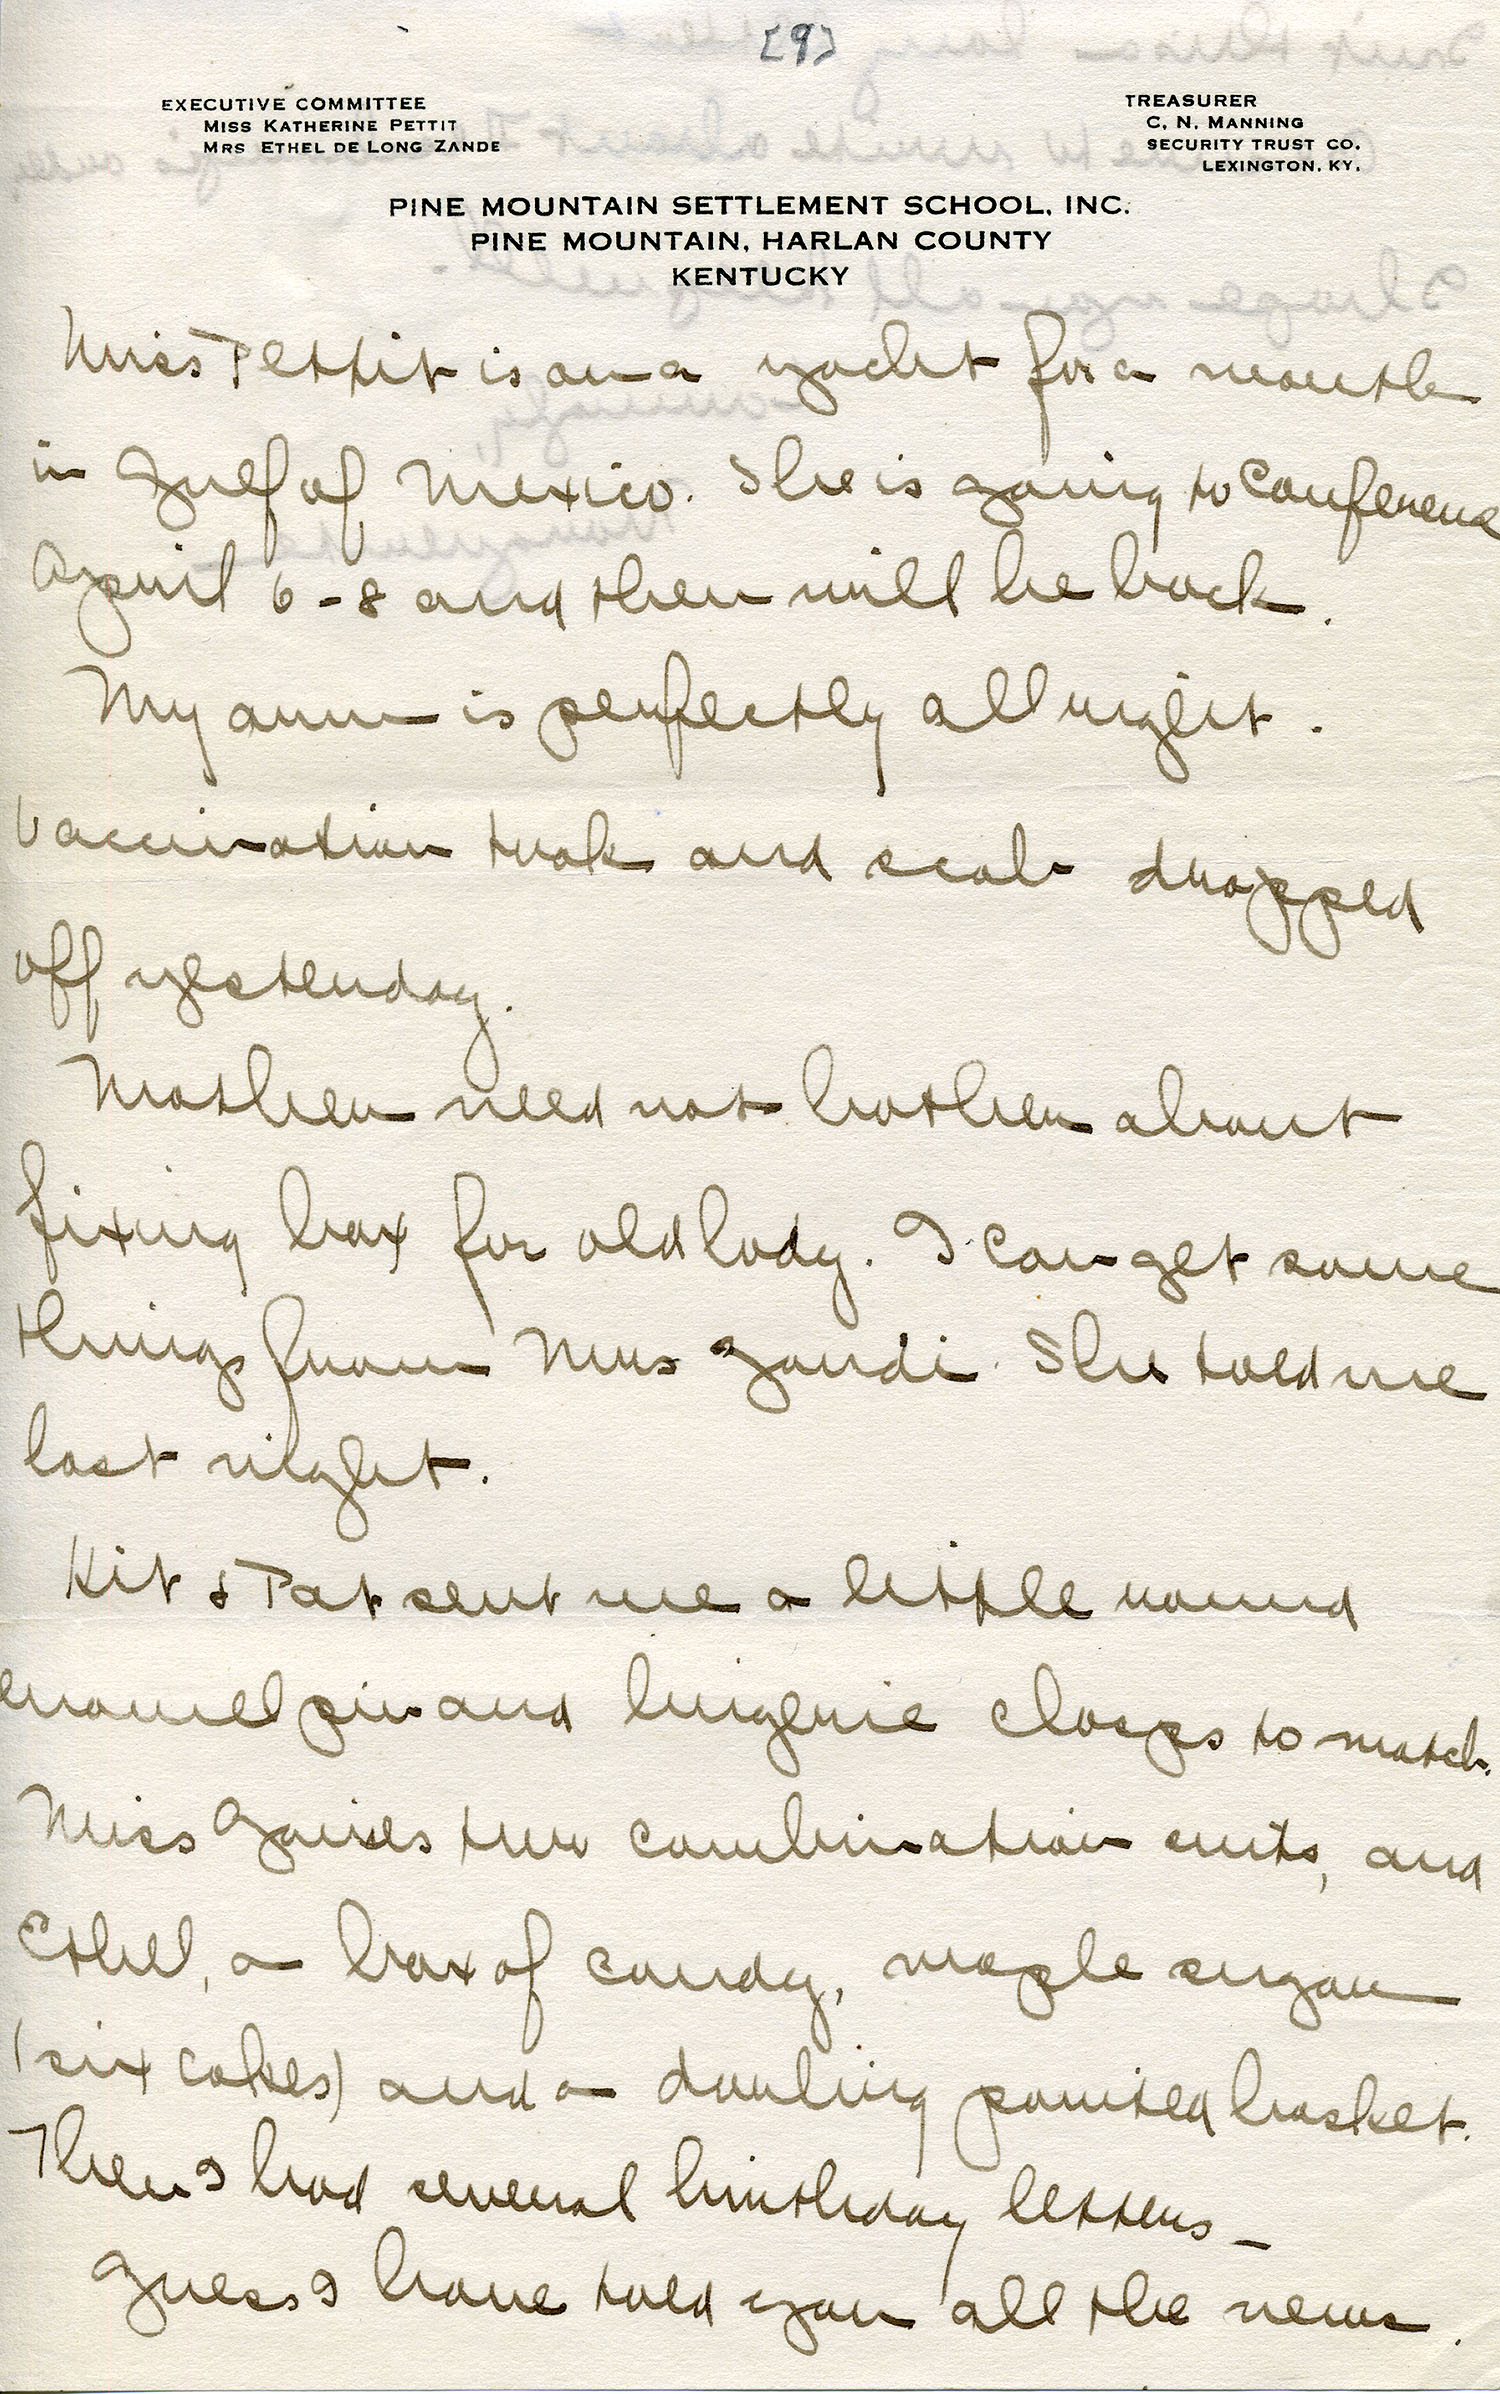 [9]
EXECUTIVE COMMITTEE
MISS KATHERINE PETTIT
MRS ETHEL DE LONG ZANDE
TREASURER
C. N. MANNING
SECURITY TRUST CO.
LEXINGTON, KY.
PINE MOUNTAIN SETTLEMENT SCHOOL, INC.
PINE MOUNTAIN, HARLAN COUNTY
KENTUCKY
Miss Pettit is on a yacht for a month
in Gulf of Mexico. She is going to Conference
April 6-8 and then will be back.
My arm is perfectly all right.
Vaccination took and scab dropped
off yesterday.
Mother need not bother about
fixing box for old lady. I can get some
things from Mrs Zande. She told me
last night.
Kit & Pat sent me a little round
enamel pin and lingerie clasps to match.
Miss Gaines two combination suits, and
Ethel, a box of candy, maple sugar
(six cakes) and a darling painted basket.
Then I had several birthday letters –
Guess I have told you all the news.